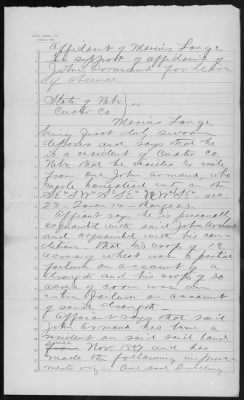 Affidavit of Marius Lange
in support of affidavit of
John Armand for leave
of absence
State of Nebr }
Custer Co
Marius Lange
being first duly sworn
deposes and says that he
is a resident of Custer Co
Nebr that he resides ½ mile
from one John Armand, who
made homestead entry on the
sec
Affiant says he is personally
acquainted with said John Armand
and acquainted with his con-
dition - that his crop of 19
acres of wheat was a partial
failure on account of
drougth and his crop of 30
acres of corn was an
entire failure on account
of said drougth
Affiant says that said
John Armand has been a
resident on said land
since Nov. and has
made the following improve-
ments viz - One sod dwelling